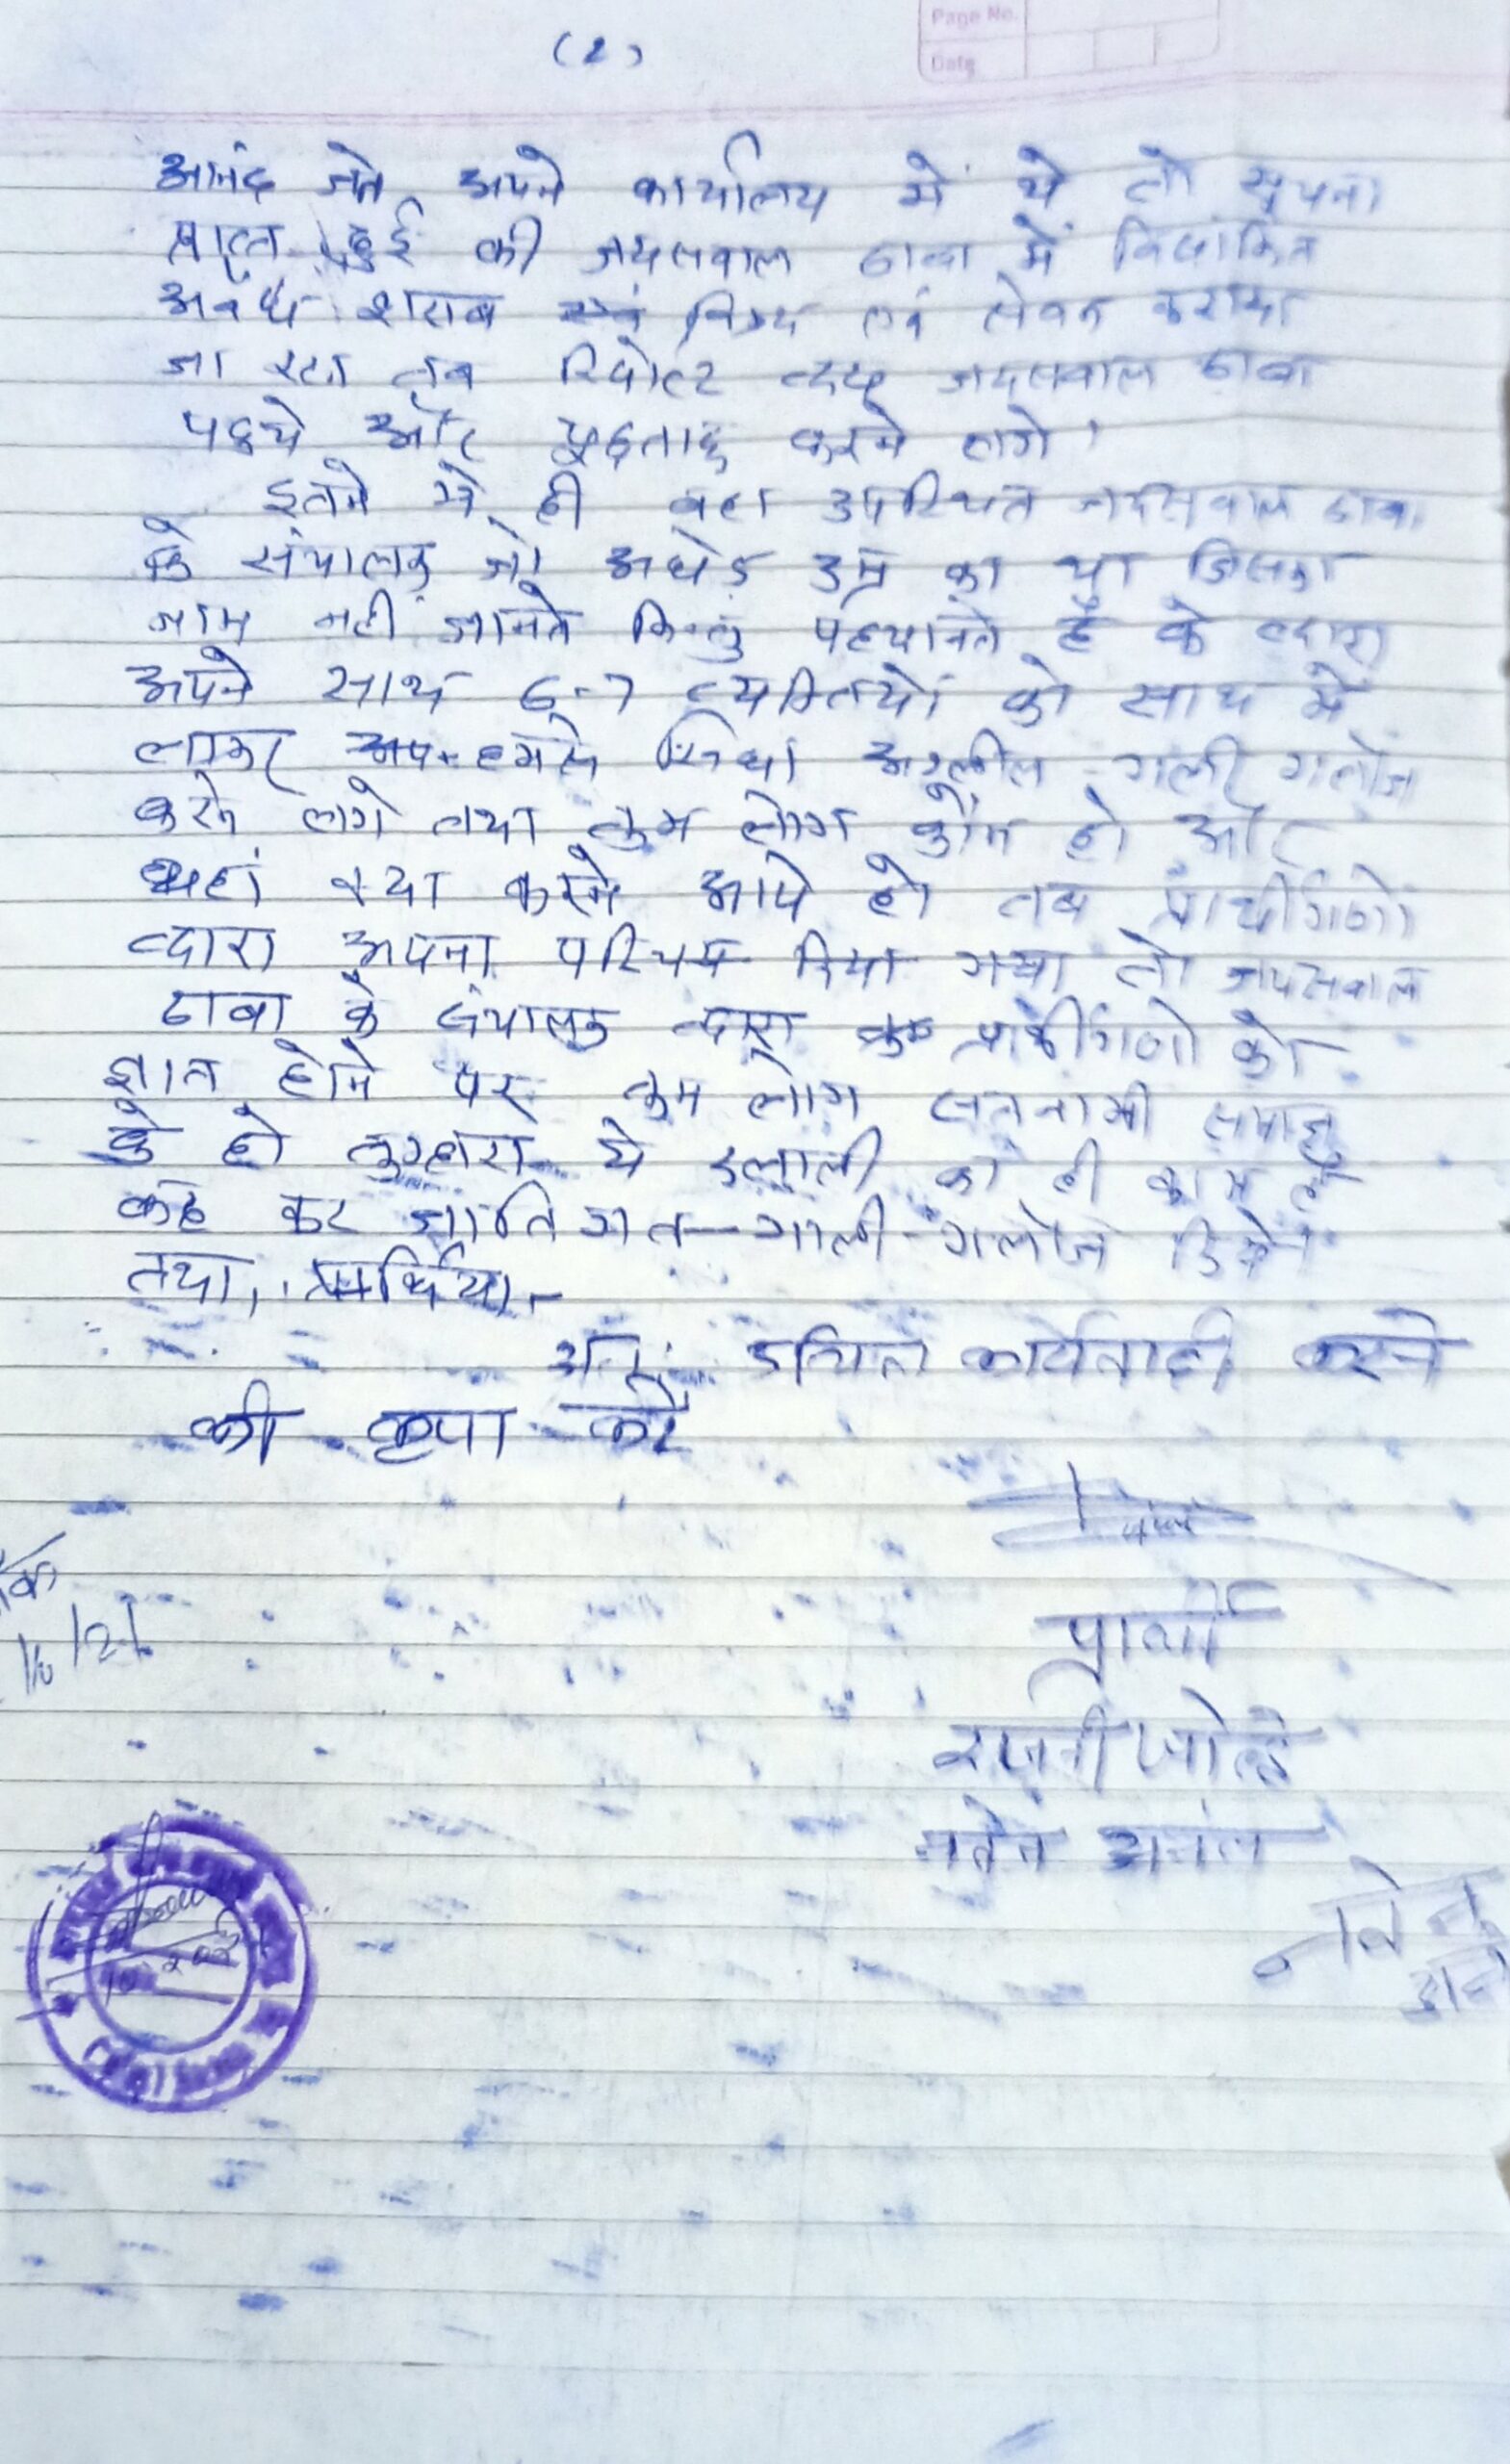 Page No.
Date
(2)
आनंद अपने कार्यालय में थे तो सूचना
प्राप्त हुई की जयसवाल ढाबा में
अवैध शराब एवं सेवन कराया
जा रहा तब रिपोर्ट जयसवाल ढाबा
पहुचे और पुछताछ करने लगे।
इतने मे ही वहा उपस्थित जयसवाल ढाबा
के संचालक जो अधेड उम्र का था जिसका
नाम नही जानते किन्तु पहचानते है के व्दारा
अपने साथ 6-7 व्यक्तियों को साथ मे
लाकर हमसे अश्लील गाली गलौज
करने लगे तथा तुम लोग कौन हो और
यहां क्या करने आये हो तब प्रार्थीगणो
व्दारा अपना परिचय दिया गया तो जयसवाल
ढाबा के संचालक व्दारा प्रार्थीगणो को
ज्ञात होने पर तुम लोग सतनामी समाज
के हो तुम्हारा ये दलाली का ही काम है
कह कर जातिगत गाली-गलौज किये।
तथा,
अतः उचित कार्यवाही करने
की कृपा करें
प्रार्थी